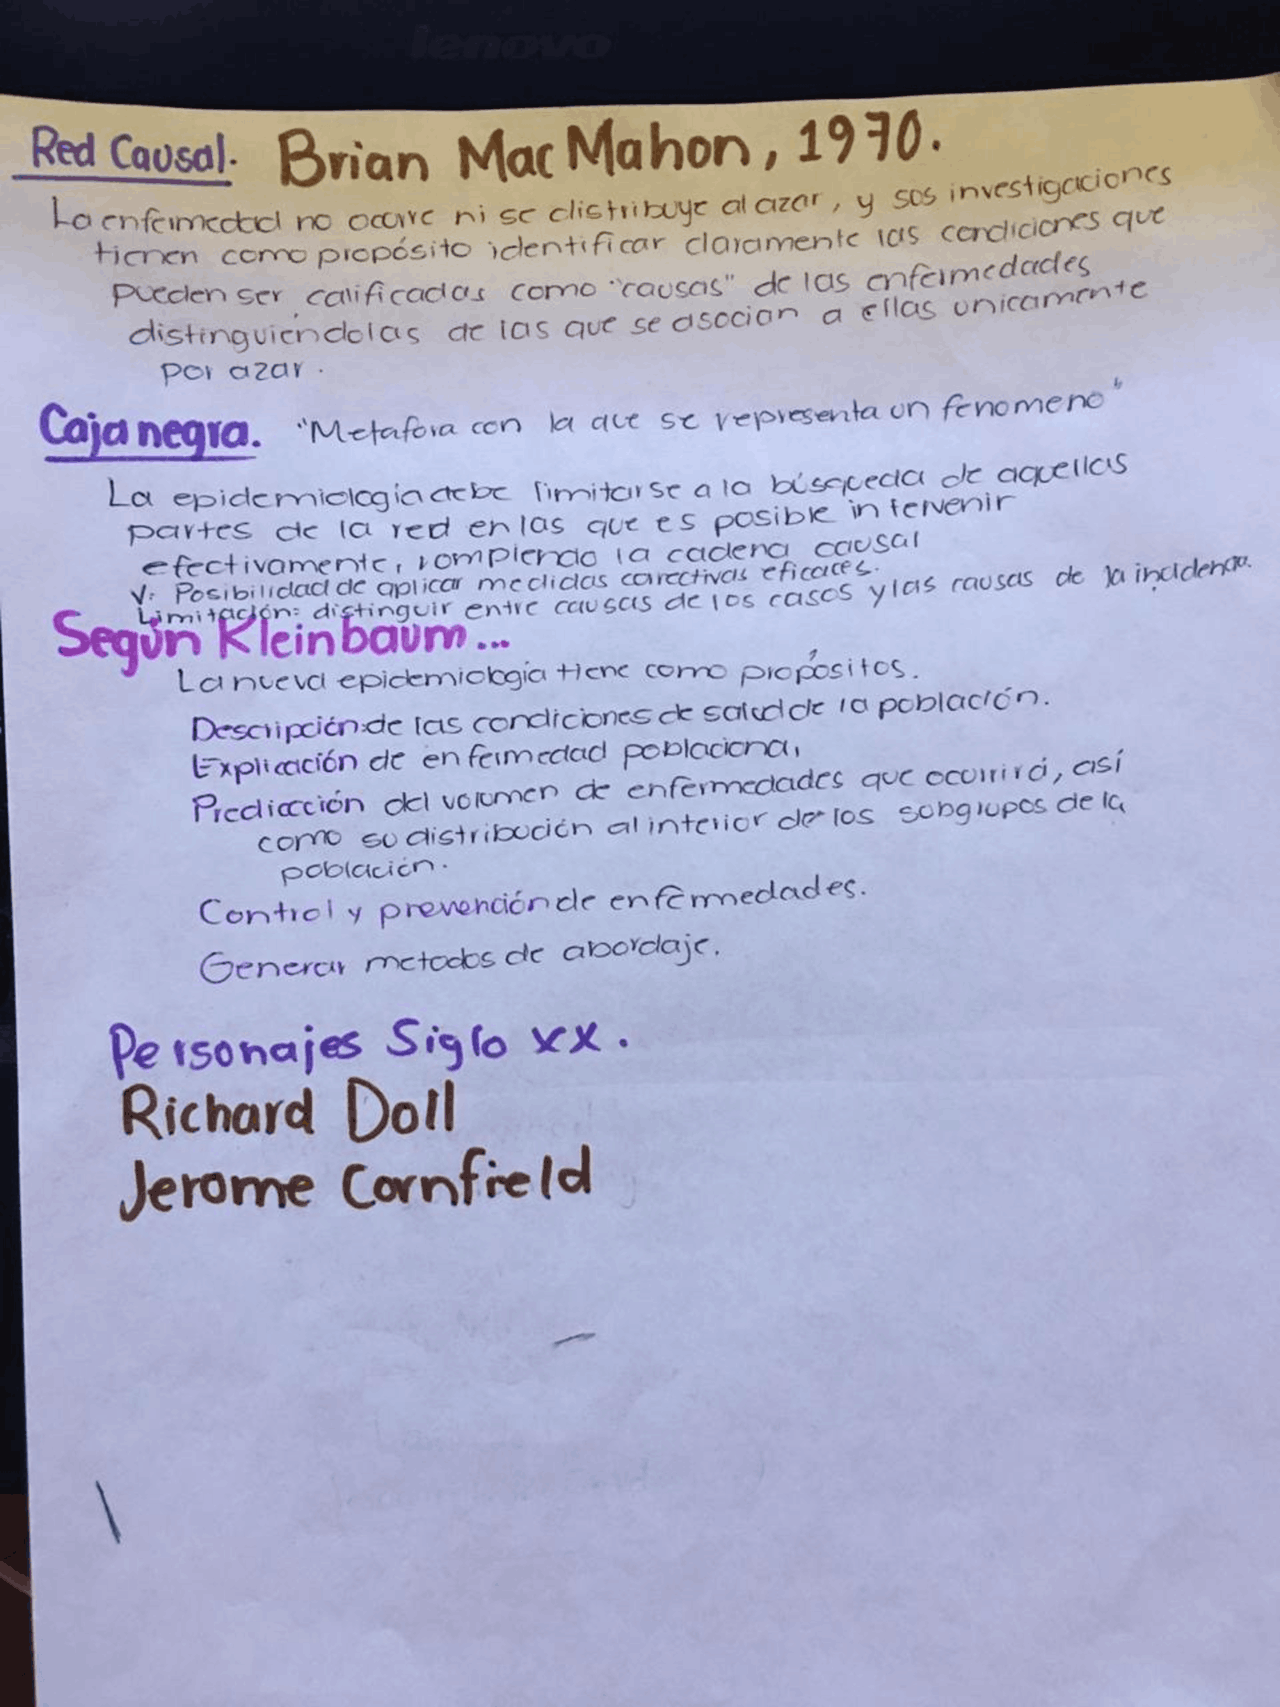 lenovo
Red Causal. Brian Mac Mahon, 1970.
La enfermedad no ocurre ni se distribuye al azar, y sus investigaciones
tienen como propósito identificar claramente las condiciones que
pueden ser calificadas como "causas" de las enfermedades
distinguiéndolas de las que se asocian a ellas unicamente
por azar.
Caja negra. "Metafora con la que se representa un fenomeno"
La epidemiología debe limitarse a la búsqueda de aquellas
partes de la red en las que es posible intervenir
efectivamente, rompiendo la cadena causal
V: Posibilidad de aplicar medidas corectivas eficaces.
Limitación: distinguir entre causas de los casos y las causas de la incidencia.
Según Kleinbaum...
La nueva epidemiología tiene como propósitos.
Descripción de las condiciones de salud de la población.
Explicación de enfermedad poblaciona,
Predicción del volumen de enfermedades que ocurrirá, así
como su distribución al interior de los subgrupos de la
población.
Control y prevención de enfermedades.
Generar metodos de abordaje.
Personajes Siglo XX.
Richard Doll
Jerome Cornfield